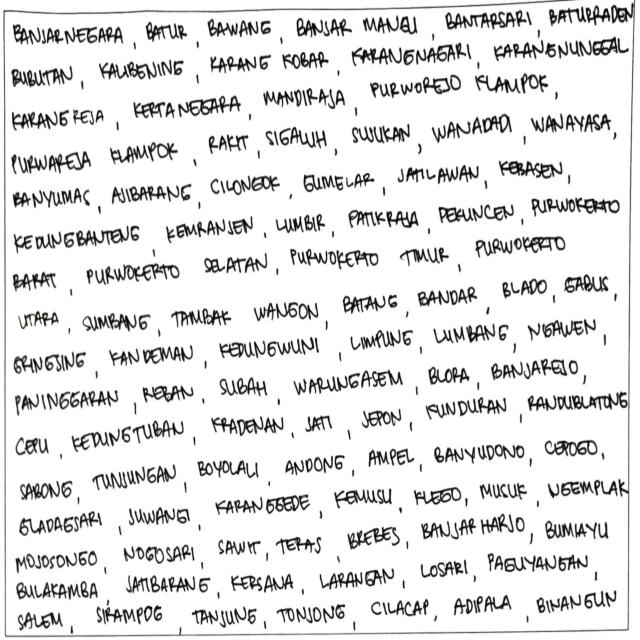 BANJARNEGARA , BATUR , BAWANG , BANJAR MANGU , BANTARSARI , BATURRADEN
BUBUTAN , KALIBENING , KARANG KOBAR , KARANGNAGARI , KARANGNUNGGAL
KARANG REJA , KERTANEGARA , MANDIRAJA , PURWOREJO KLAMPOK ,
PURWAREJA KLAMPOK , RAKIT , SIGALUH , SUSUKAN , WANADADI , WANAYASA ,
BANYUMAS , AJIBARANG , CILONGOK , GUMELAR , JATILAWAN , KEBASEN ,
KEDUNGBANTENG , KEMRANJEN , LUMBIR , PATIKRAJA , PEKUNCEN , PURWOKERTO
BARAT , PURWOKERTO SELATAN , PURWOKERTO TIMUR , PURWOKERTO
UTARA , SUMBANG , TAMBAK WANGON , BATANG , BANDAR , BLADO , GABUS ,
GRINGSING , KANDEMAN , KEDUNGWUNI , LIMPUNG , LUMBANG , NGAWEN ,
PANINGGARAN , REBAN , SUBAH , WARUNGASEM , BLORA , BANJAREJO ,
CEPU , KEDUNGTUBAN , KRADENAN , JATI , JEPON , KUNDURAN , RANDUBLATONG
SABONG , TUNJUNGAN , BOYOLALI , ANDONG , AMPEL , BANYUDONO , CEPOGO ,
GLADAGSARI , JUWANGI , KARANGGEDE , KEMUSU , KLEGO , MUSUK , NGEMPLAK
MOJOSONGO , NOGOSARI , SAWIT , TERAS , BREBES , BANJARHARJO , BUMIAYU
BULAKAMBA , JATIBARANG , KERSANA , LARANGAN , LOSARI , PAGUYANGAN ,
SALEM , SIRAMPOG , TANJUNG , TONJONG , CILACAP , ADIPALA , BINANGUN